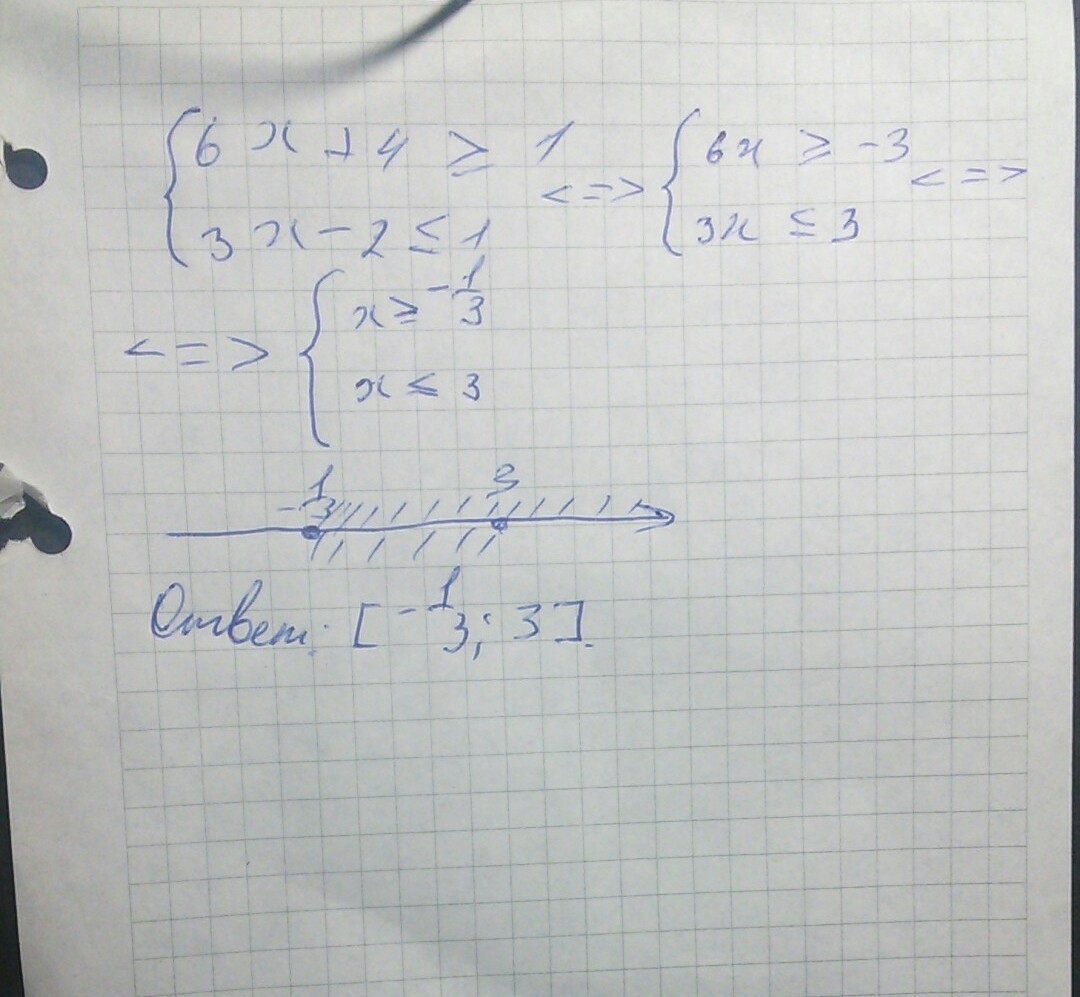 {6x + 4 ≥ 1 <=> {6x ≥ -3 <=>
{3x - 2 ≤ 1 {3x ≤ 3
<=> {x ≥ -1/3
{x ≤ 3
-1/3 3
Ответ: [-1/3; 3].